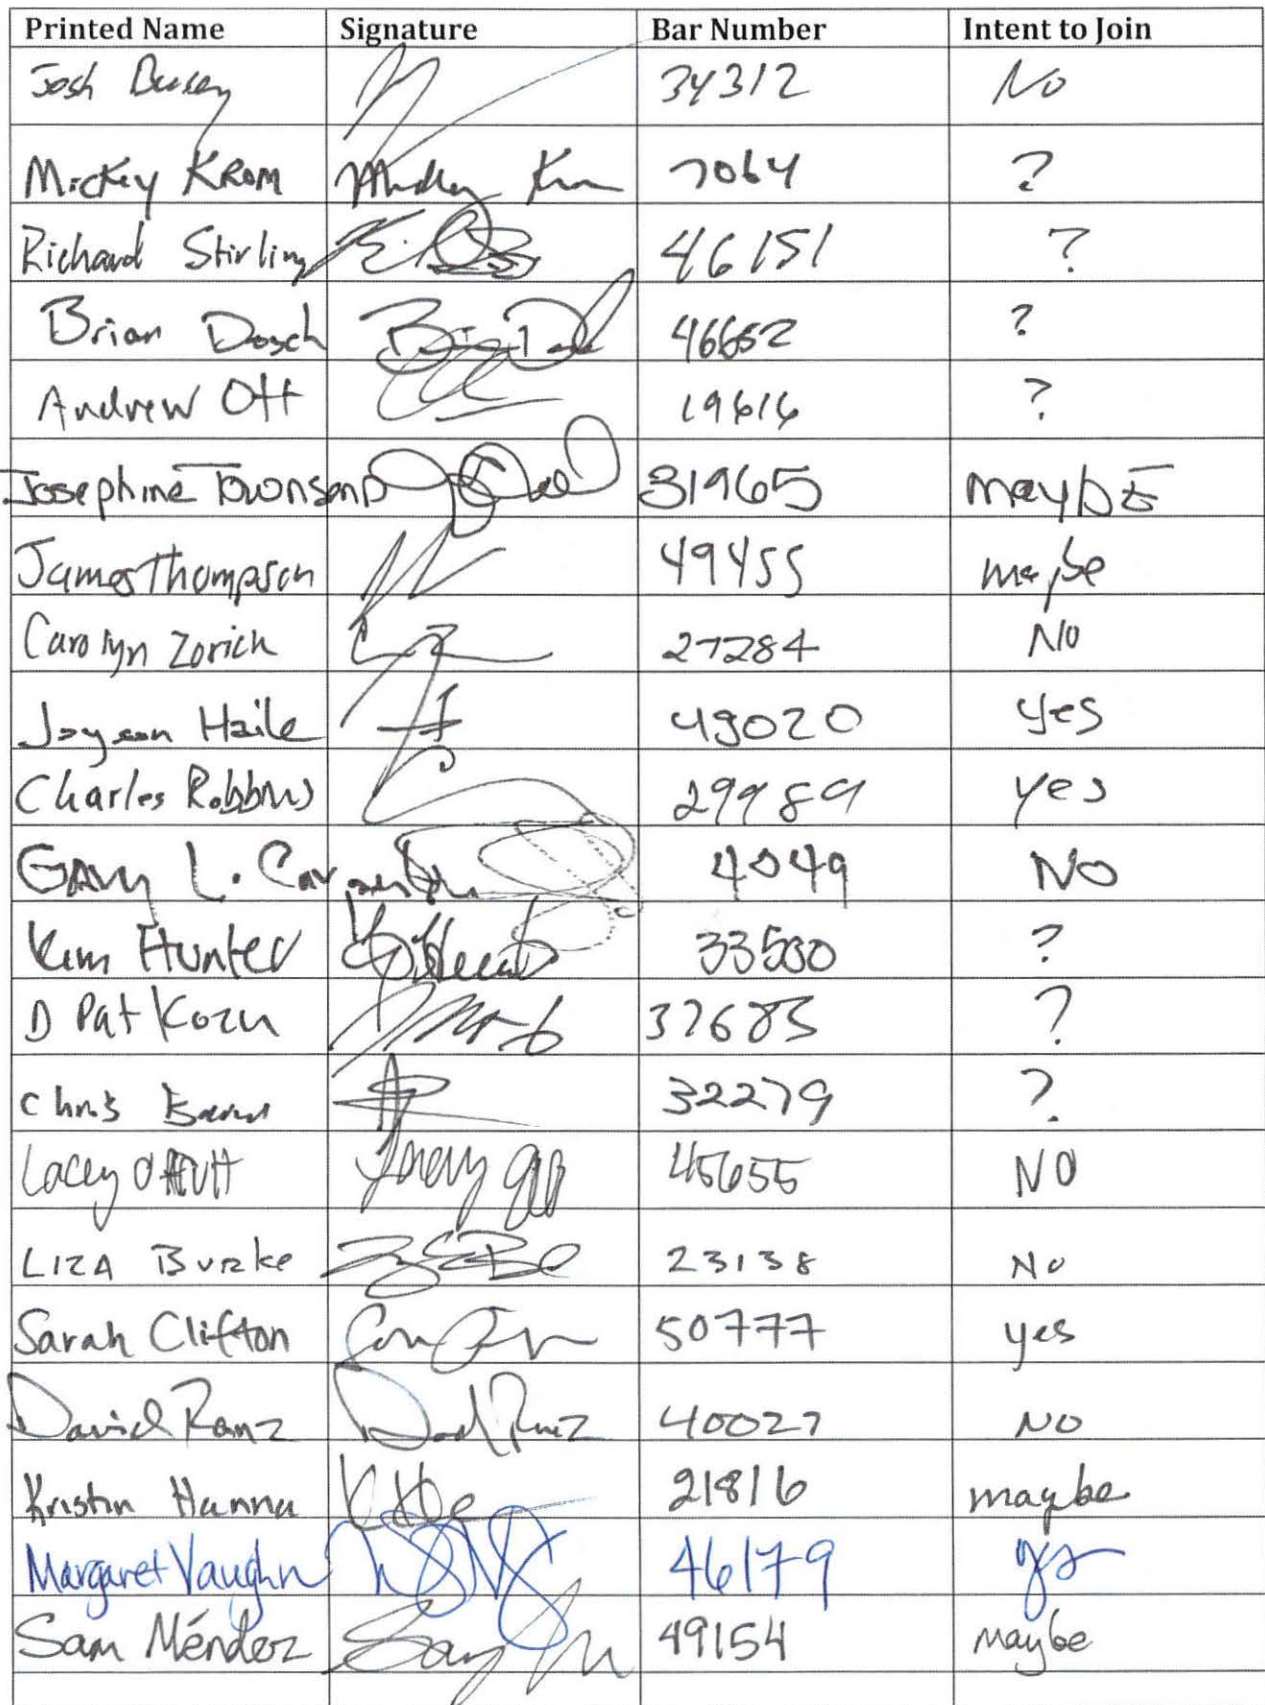 Printed Name Signature Bar Number Intent to Join
Josh 34312 No
Mickey KRom 7064 ?
Richard Stirling 46151 ?
Brian Dosch 46652 ?
Andrew Ott 19616 ?
Josephine Townsend 31965 maybE
James Thompson 49455 maybe
Carolyn Zorich 27284 No
Jayson Haile 49020 yes
Charles Robbins 29989 yes
GAry L. 4049 NO
Kim Hunter 33500 ?
D Pat 37685 ?
Chris 32279 ?
Lacey Offutt 45655 NO
LIZA Burke 23138 No
Sarah Clifton 50777 yes
David Ranz 40027 NO
Kristin Hanna 21816 maybe
Margaret Vaughn 46179 yes
Sam Méndez 49154 maybe